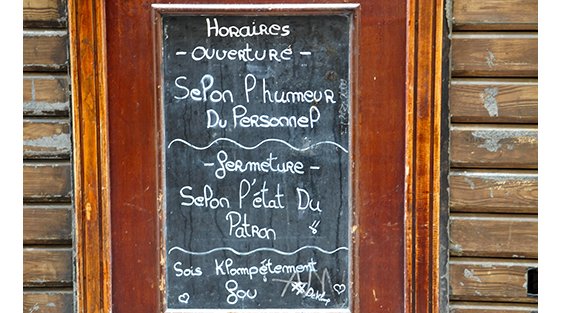 Horaires
- Ouverture -
Selon l'humeur
Du Personnel
- fermeture -
Selon l'état Du
Patron
Sois Klompêtement
fou